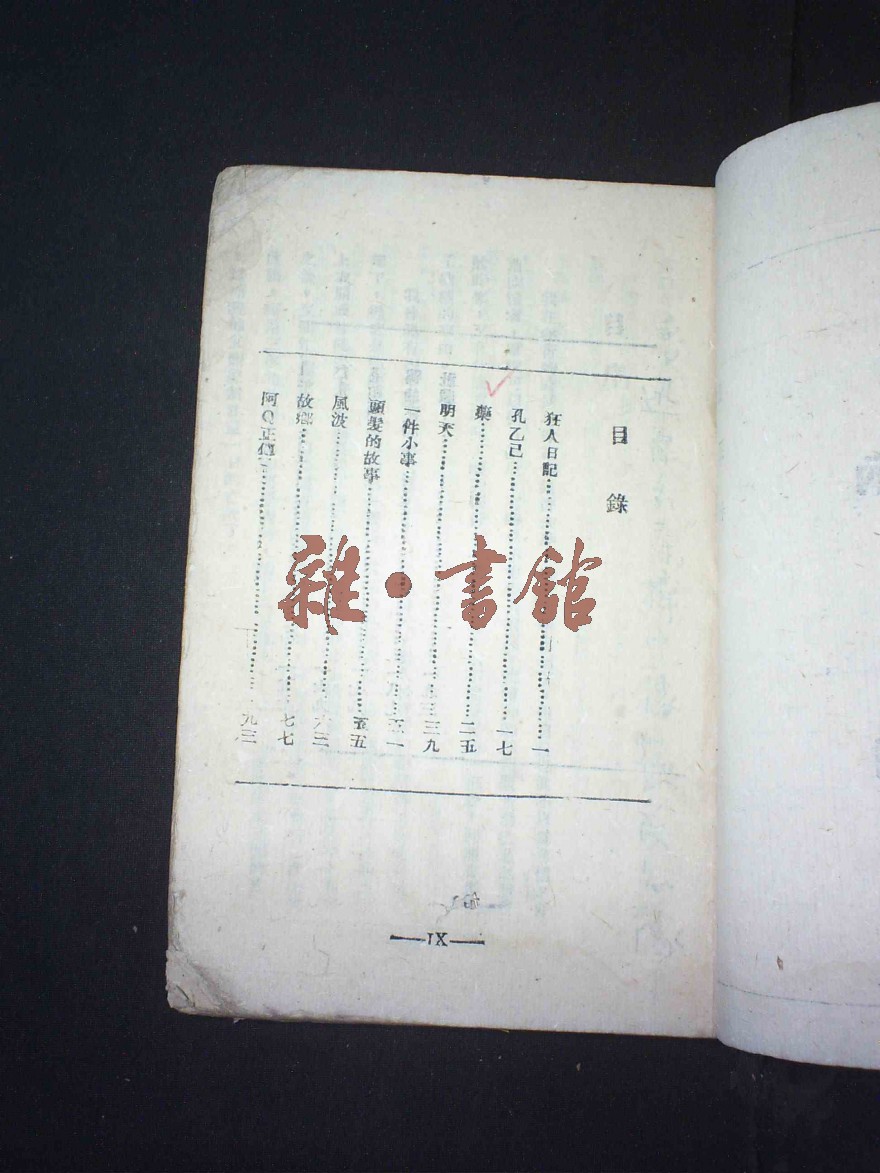 目錄
狂人日記……一
孔乙己……一七
藥……二五
明天……三九
一件小事……五一
頭髮的故事……五五
風波……六三
故鄉……七七
阿Q正傳……九三
—IX—
雜·書館